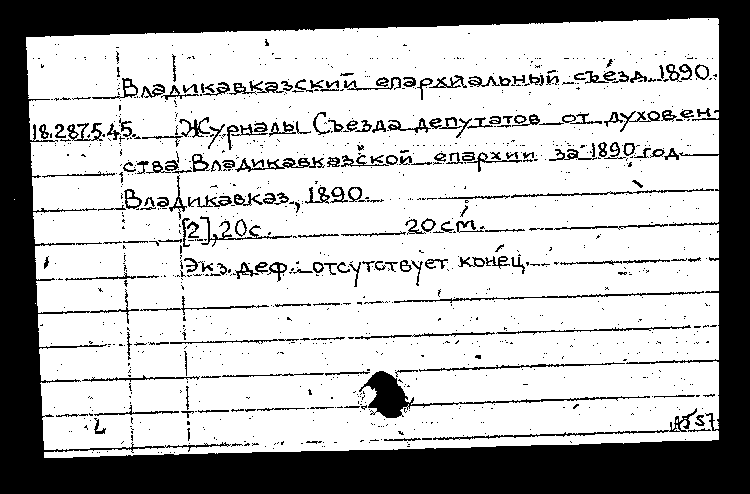 Владикавказский епархиальный съезд, 1890.
18.287.5.45. Журналы Съезда депутатов от духовен-
ства Владикавказской епархии за 1890 год.
Владикавказ, 1890.
[2], 20 с. 20 см.
Экз. деф.: отсутствует конец.
L